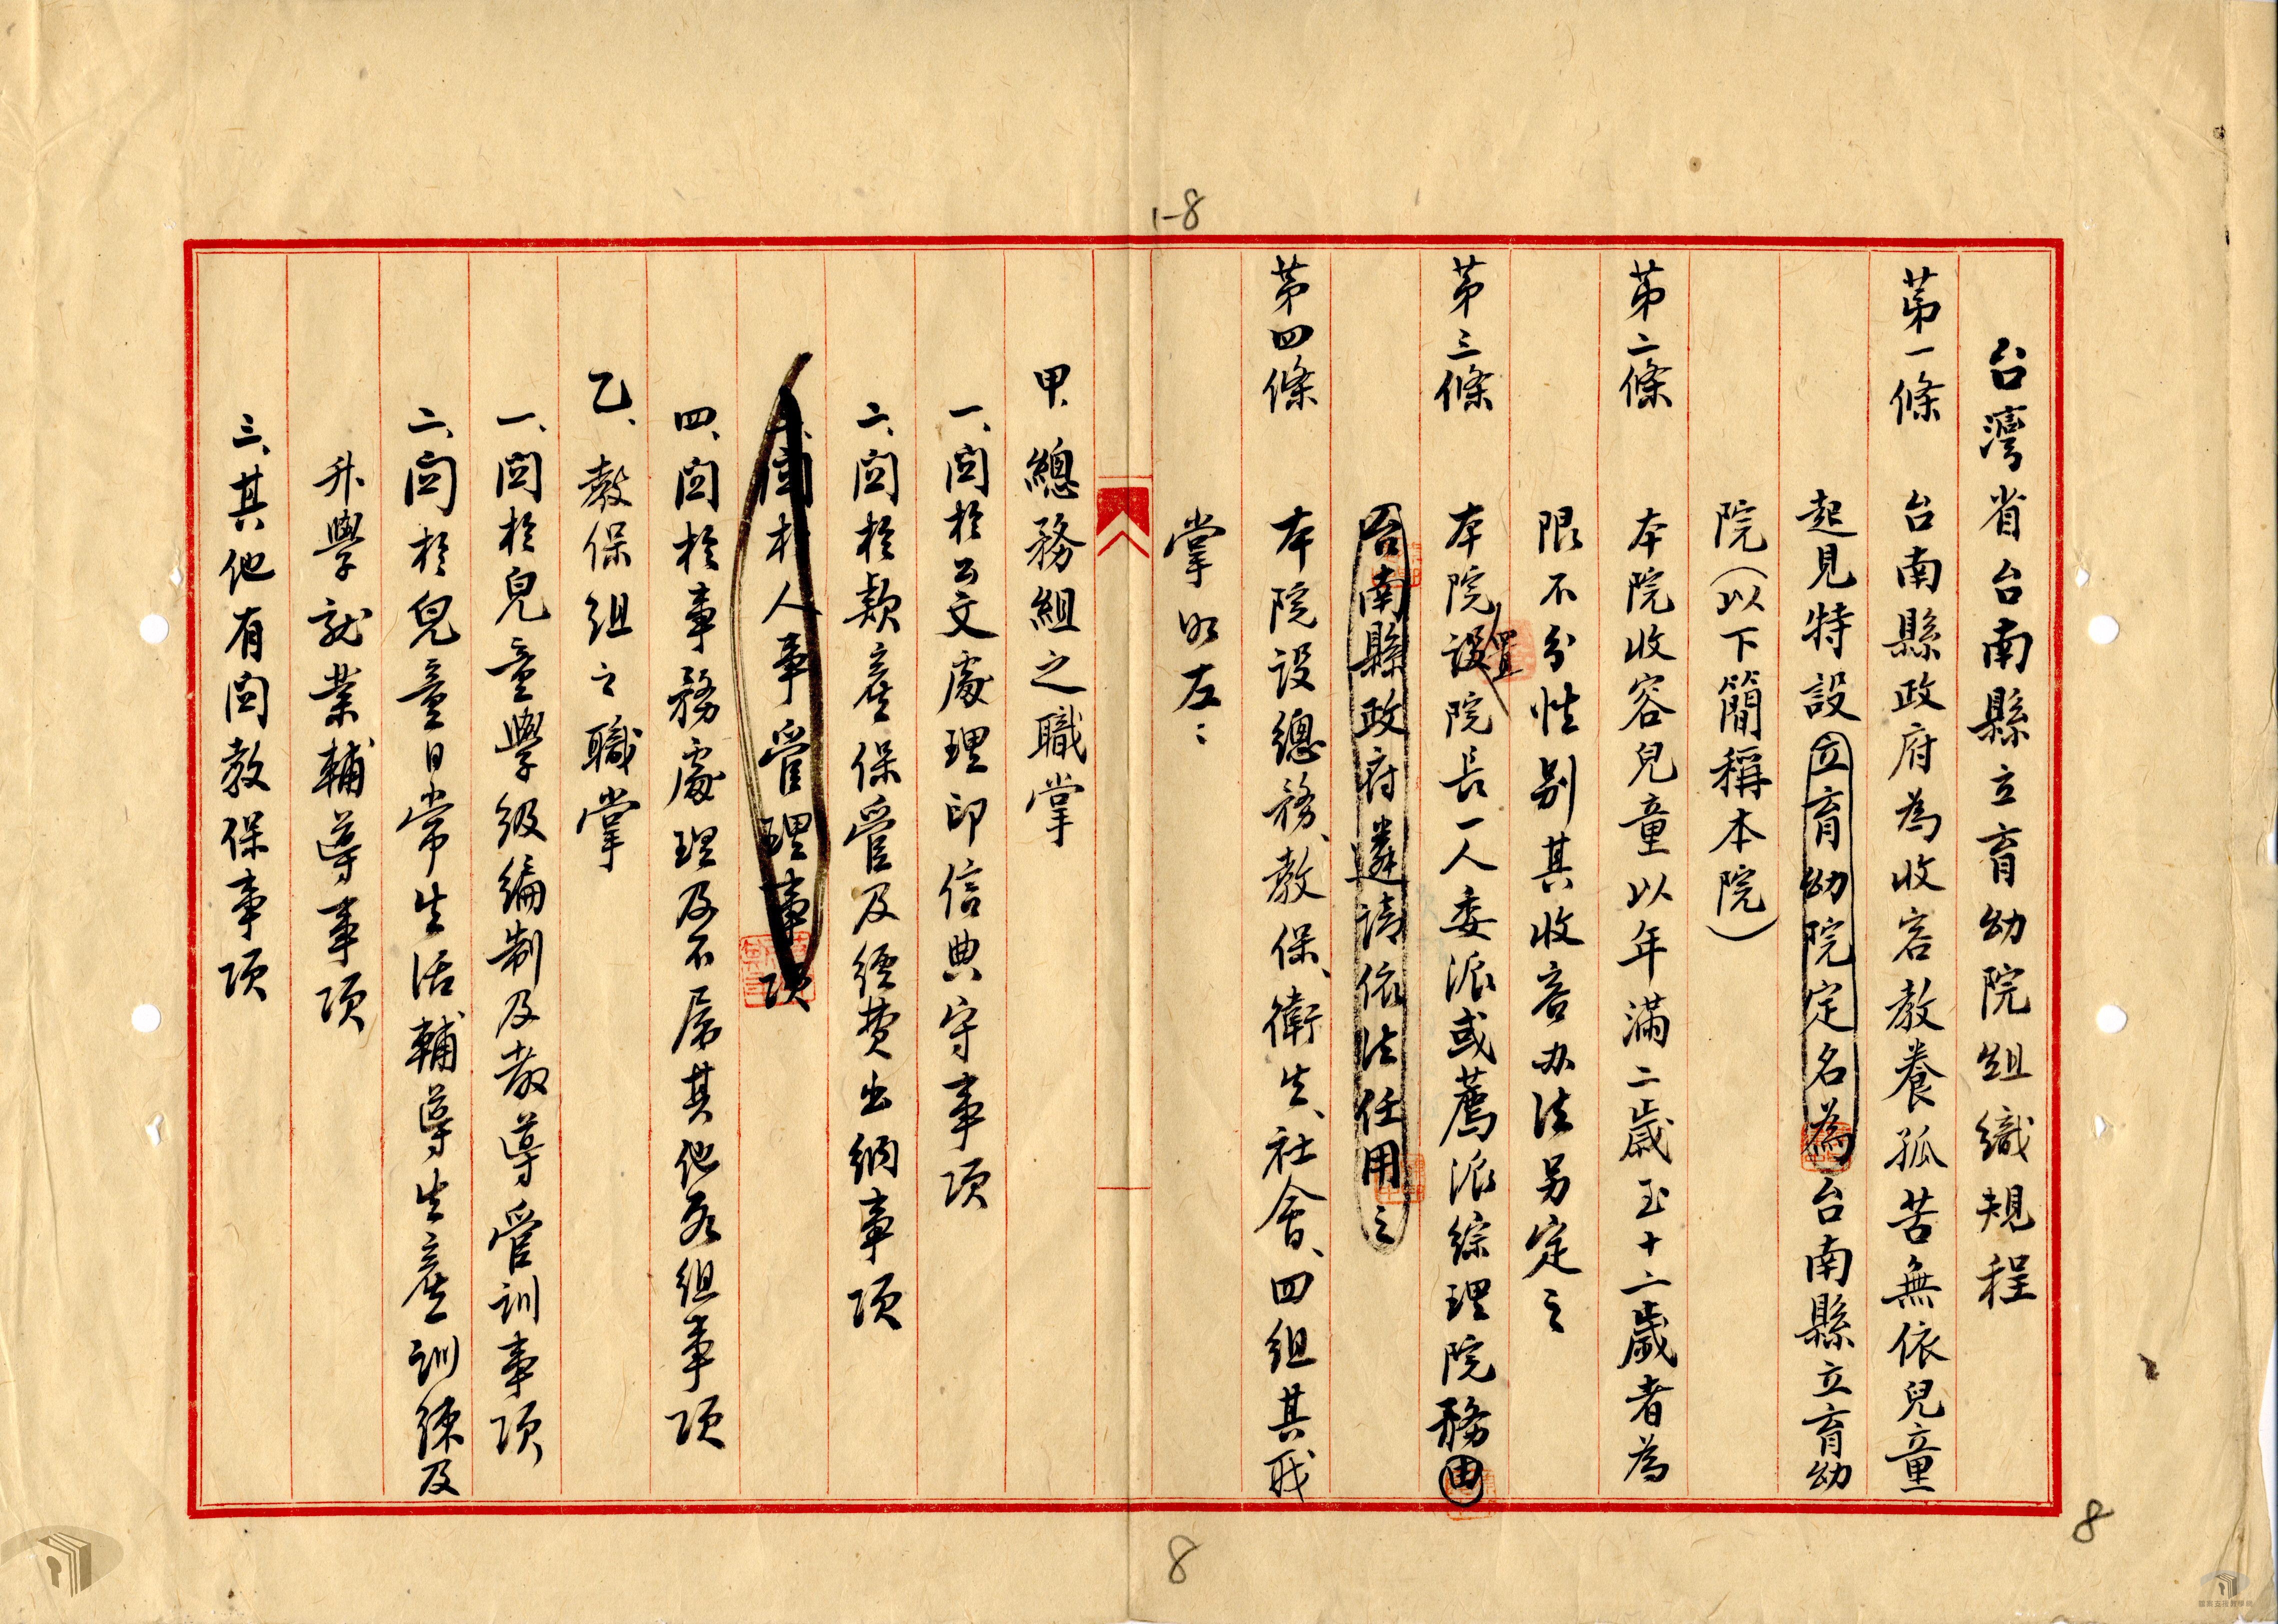 1-8
台灣省台南縣立育幼院組織規程
第一條　台南縣政府為收容教養孤苦無依兒童
起見特設立育幼院定名為台南縣立育幼
院（以下簡稱本院）
第二條　本院收容兒童以年滿二歲至十二歲者為
限不分性別其收容办法另定之
第三條　本院設置院長一人委派或薦派綜理院務由
台南縣政府遴請依法任用之
第四條　本院設總務、教保、衛生、社會、四組其职
掌如左：
甲、總務組之職掌
一、関於公文處理印信典守事項
二、関於款產保管及經費出納事項
関於人事管理事項
四、関於事務處理及不屬其他各組事項
乙、教保組之職掌
一、関於兒童學級編制及教導管訓事項
二、関於兒童日常生活輔導生產訓練及
升學就業輔導事項
三、其他有関教保事項
8
8